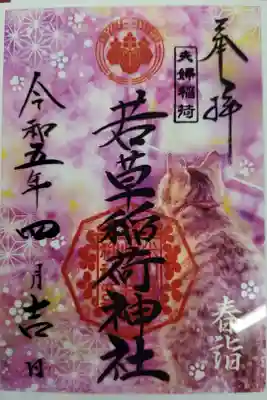 奉拝
夫婦稲荷
若草稲荷神社
令和五年四月吉日
春詣